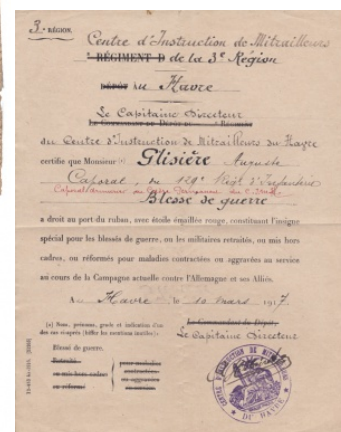 3e RÉGION.
Centre d'Instruction de Mitrailleurs
RÉGIMENT D de la 3e Région
DÉPÔT du Havre
Le Capitaine Directeur
Le Commandant du Dépôt du Régiment
du Centre d'Instruction de Mitrailleurs du Havre
certifie que Monsieur (1) Glisière Auguste
Caporal, du 129e Régt d'Infanterie
Caporal
Blessé de guerre
a droit au port du ruban, avec étoile émaillée rouge, constituant l'insigne
spécial pour les blessés de guerre, ou les militaires retraités, ou mis hors
cadres, ou réformés pour maladies contractées ou aggravées au service
au cours de la Campagne actuelle contre l'Allemagne et ses Alliés.
Au Havre, le 10 mars 1917
Le Commandant du Dépôt,
Le Capitaine Directeur
(1) Nom, prénoms, grade et indication d'un
des cas ci-après (biffer les mentions inutiles) :
Blessé de guerre.
Retraité
ou mis hors cadres
ou réformé
pour maladies
contractées
ou aggravées
au service.
CENTRE D'INSTRUCTION DE MITRAILLEURS
DU HAVRE